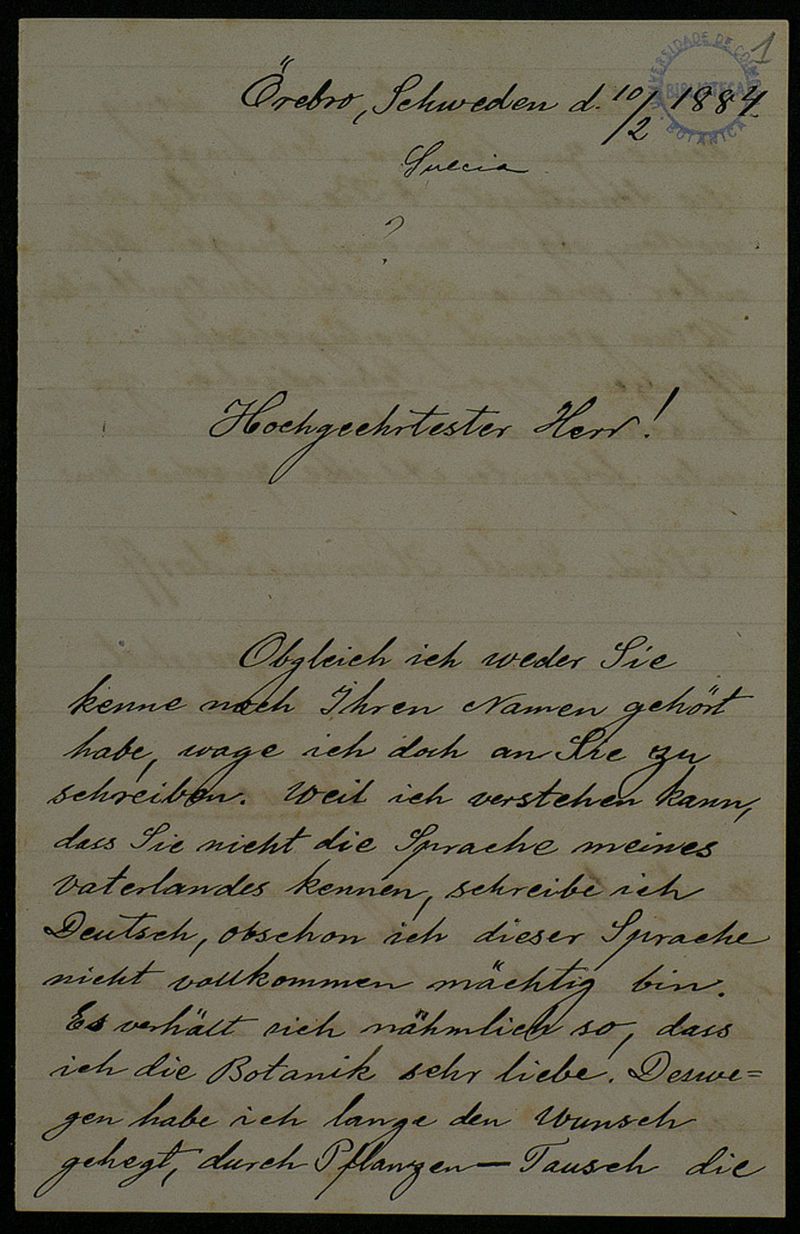 1
UNIVERSIDADE DE COIMBRA
BIBLIOTECA
BOTANICA
Örebro, Schweden d. 10/2 1884.
Suecia
?
Hochgeehrtester Herr!
Obgleich ich weder Sie
kenne noch Ihren Namen gehört
habe, wage ich doch an Sie zu
schreiben. Weil ich verstehen kann,
dass Sie nicht die Sprache meines
Vaterlandes kennen, schreibe ich
Deutsch, obschon ich dieser Sprache
nicht vollkommen mächtig bin.
Es verhält sich nähmlich so, dass
ich die Botanik sehr liebe. Deswe=
gen habe ich lange den Wunsch
gehegt, durch Pflanzen-Tausch die